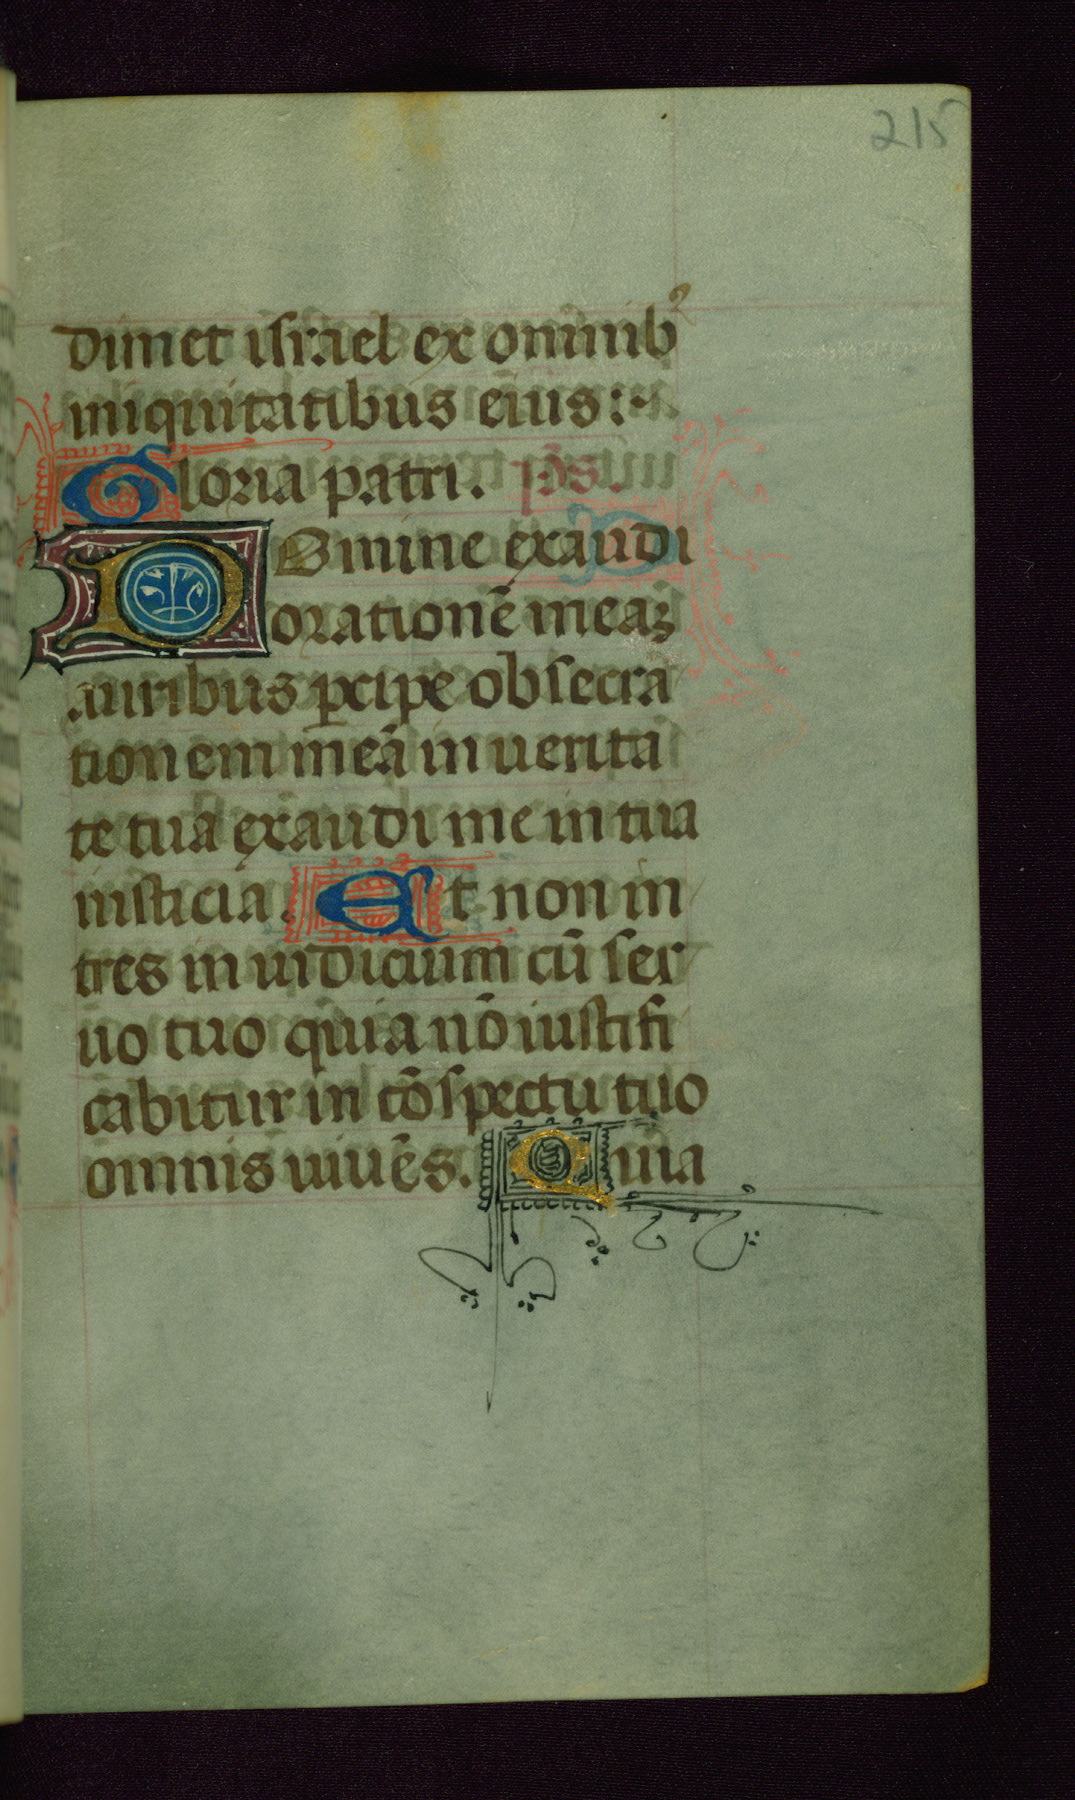 215
dimet israel ex omnibꝰ
iniquitatibus eius:
Gloria patri. ps̄.
DOmine exaudi
orationē meaꝫ
auribus ꝑcipe obsecra
tionem meā in uerita
te tua exaudi me in tua
iusticia. Et non in
tres in iudicium cū ser
uo tuo quia nō iustifi
cabitur in cōspectu tuo
omnis uiuēs. Quia